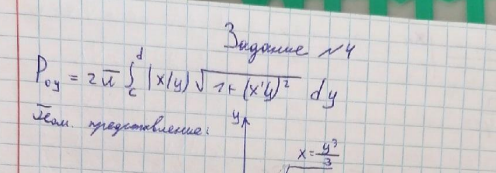 Задание №4
P_oy = 2π ∫_c^d |x(y)| √(1+(x'y)²) dy
Геом. представление:
y
x = y³/3